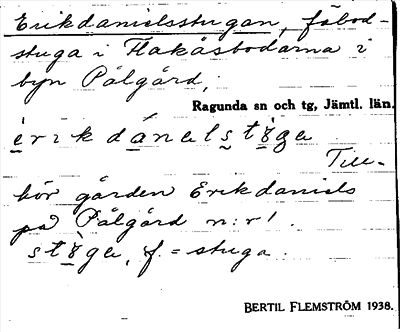 Erikdanielsstugan, fäbod-
stuga i Flakåsbodarna i
byn Pålgård,
Ragunda sn och tg, Jämtl. län.
Till-
hör gården Erikdaniels
på Pålgård n:r 1.
f. = stuga.
BERTIL FLEMSTRÖM 1938.